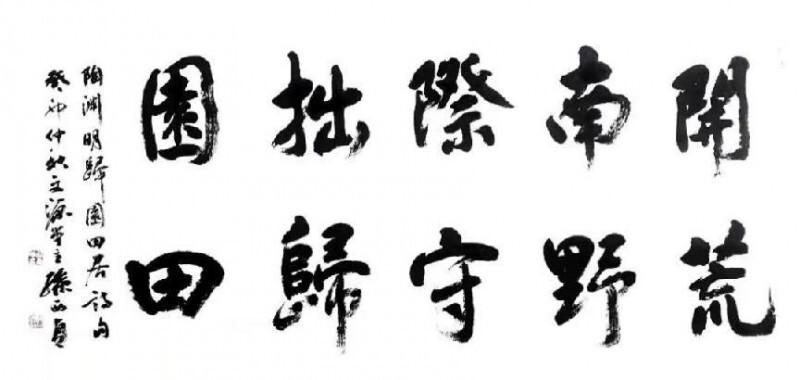 開荒
南野
際守
拙歸
園田
陶淵明歸園田居詩句
癸卯仲秋文源堂主孫正貞